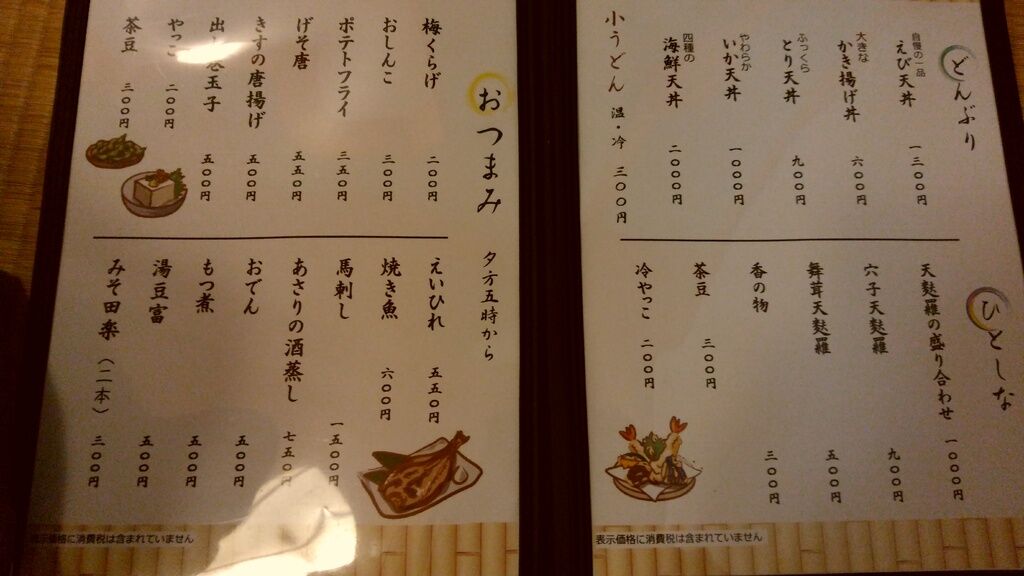 どんぶり
自慢の一品
えび天丼 一三〇〇円
大きな
かき揚げ丼 六〇〇円
ふっくら
とり天丼 九〇〇円
やわらか
いか天丼 一〇〇〇円
四種の
海鮮天丼 二〇〇〇円
小うどん 温・冷 三〇〇円
ひとしな
天麩羅の盛り合わせ 一〇〇〇円
六子天麩羅 九〇〇円
舞茸天麩羅 五〇〇円
香の物 三〇〇円
茶豆 三〇〇円
冷やっこ 二〇〇円
表示価格に消費税は含まれていません
おつまみ 夕方五時から
梅くらげ 二〇〇円
おしんこ 三〇〇円
ポテトフライ 三五〇円
げそ唐 五五〇円
きすの唐揚げ 五〇〇円
出し巻玉子 五〇〇円
やっこ 二〇〇円
茶豆 三〇〇円
えいひれ 五五〇円
焼き魚 六〇〇円
馬刺し 一五〇〇円
あさりの酒蒸し 七五〇円
おでん 五〇〇円
もつ煮 五〇〇円
湯豆富 五〇〇円
みそ田楽(二本) 三〇〇円
表示価格に消費税は含まれていません